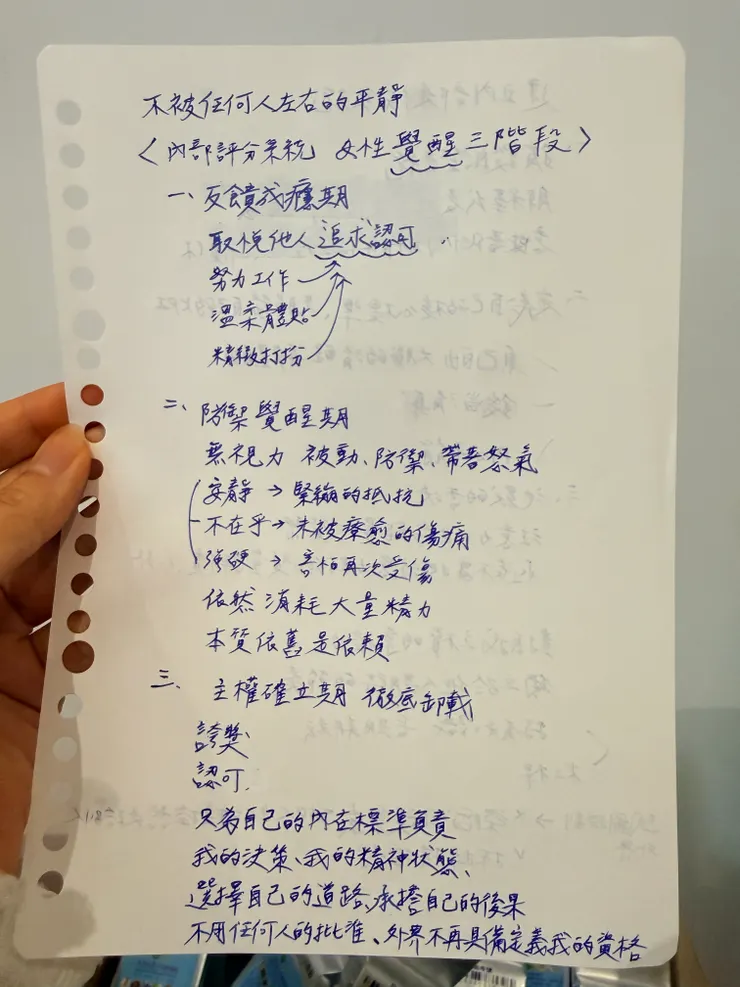 不被任何人左右的平靜
〈內部評分系統 女性覺醒三階段〉
一、反饋成癮期
取悅他人追求認可
努力工作
溫柔體貼
精緻打扮
二、防禦覺醒期
無視力 被動、防禦、帶著怒氣
安靜→緊繃的抵抗
不在乎→未被療愈的傷痛
強硬→害怕再次受傷
依然消耗大量精力
本質依舊是依賴
三、主權確立期 徹底卸載
誇獎
認可
只為自己的內在標準負責
我的決策、我的精神狀態、
選擇自己的道路、承擔自己的後果
不用任何人的批准、外界不再具備定義我的資格